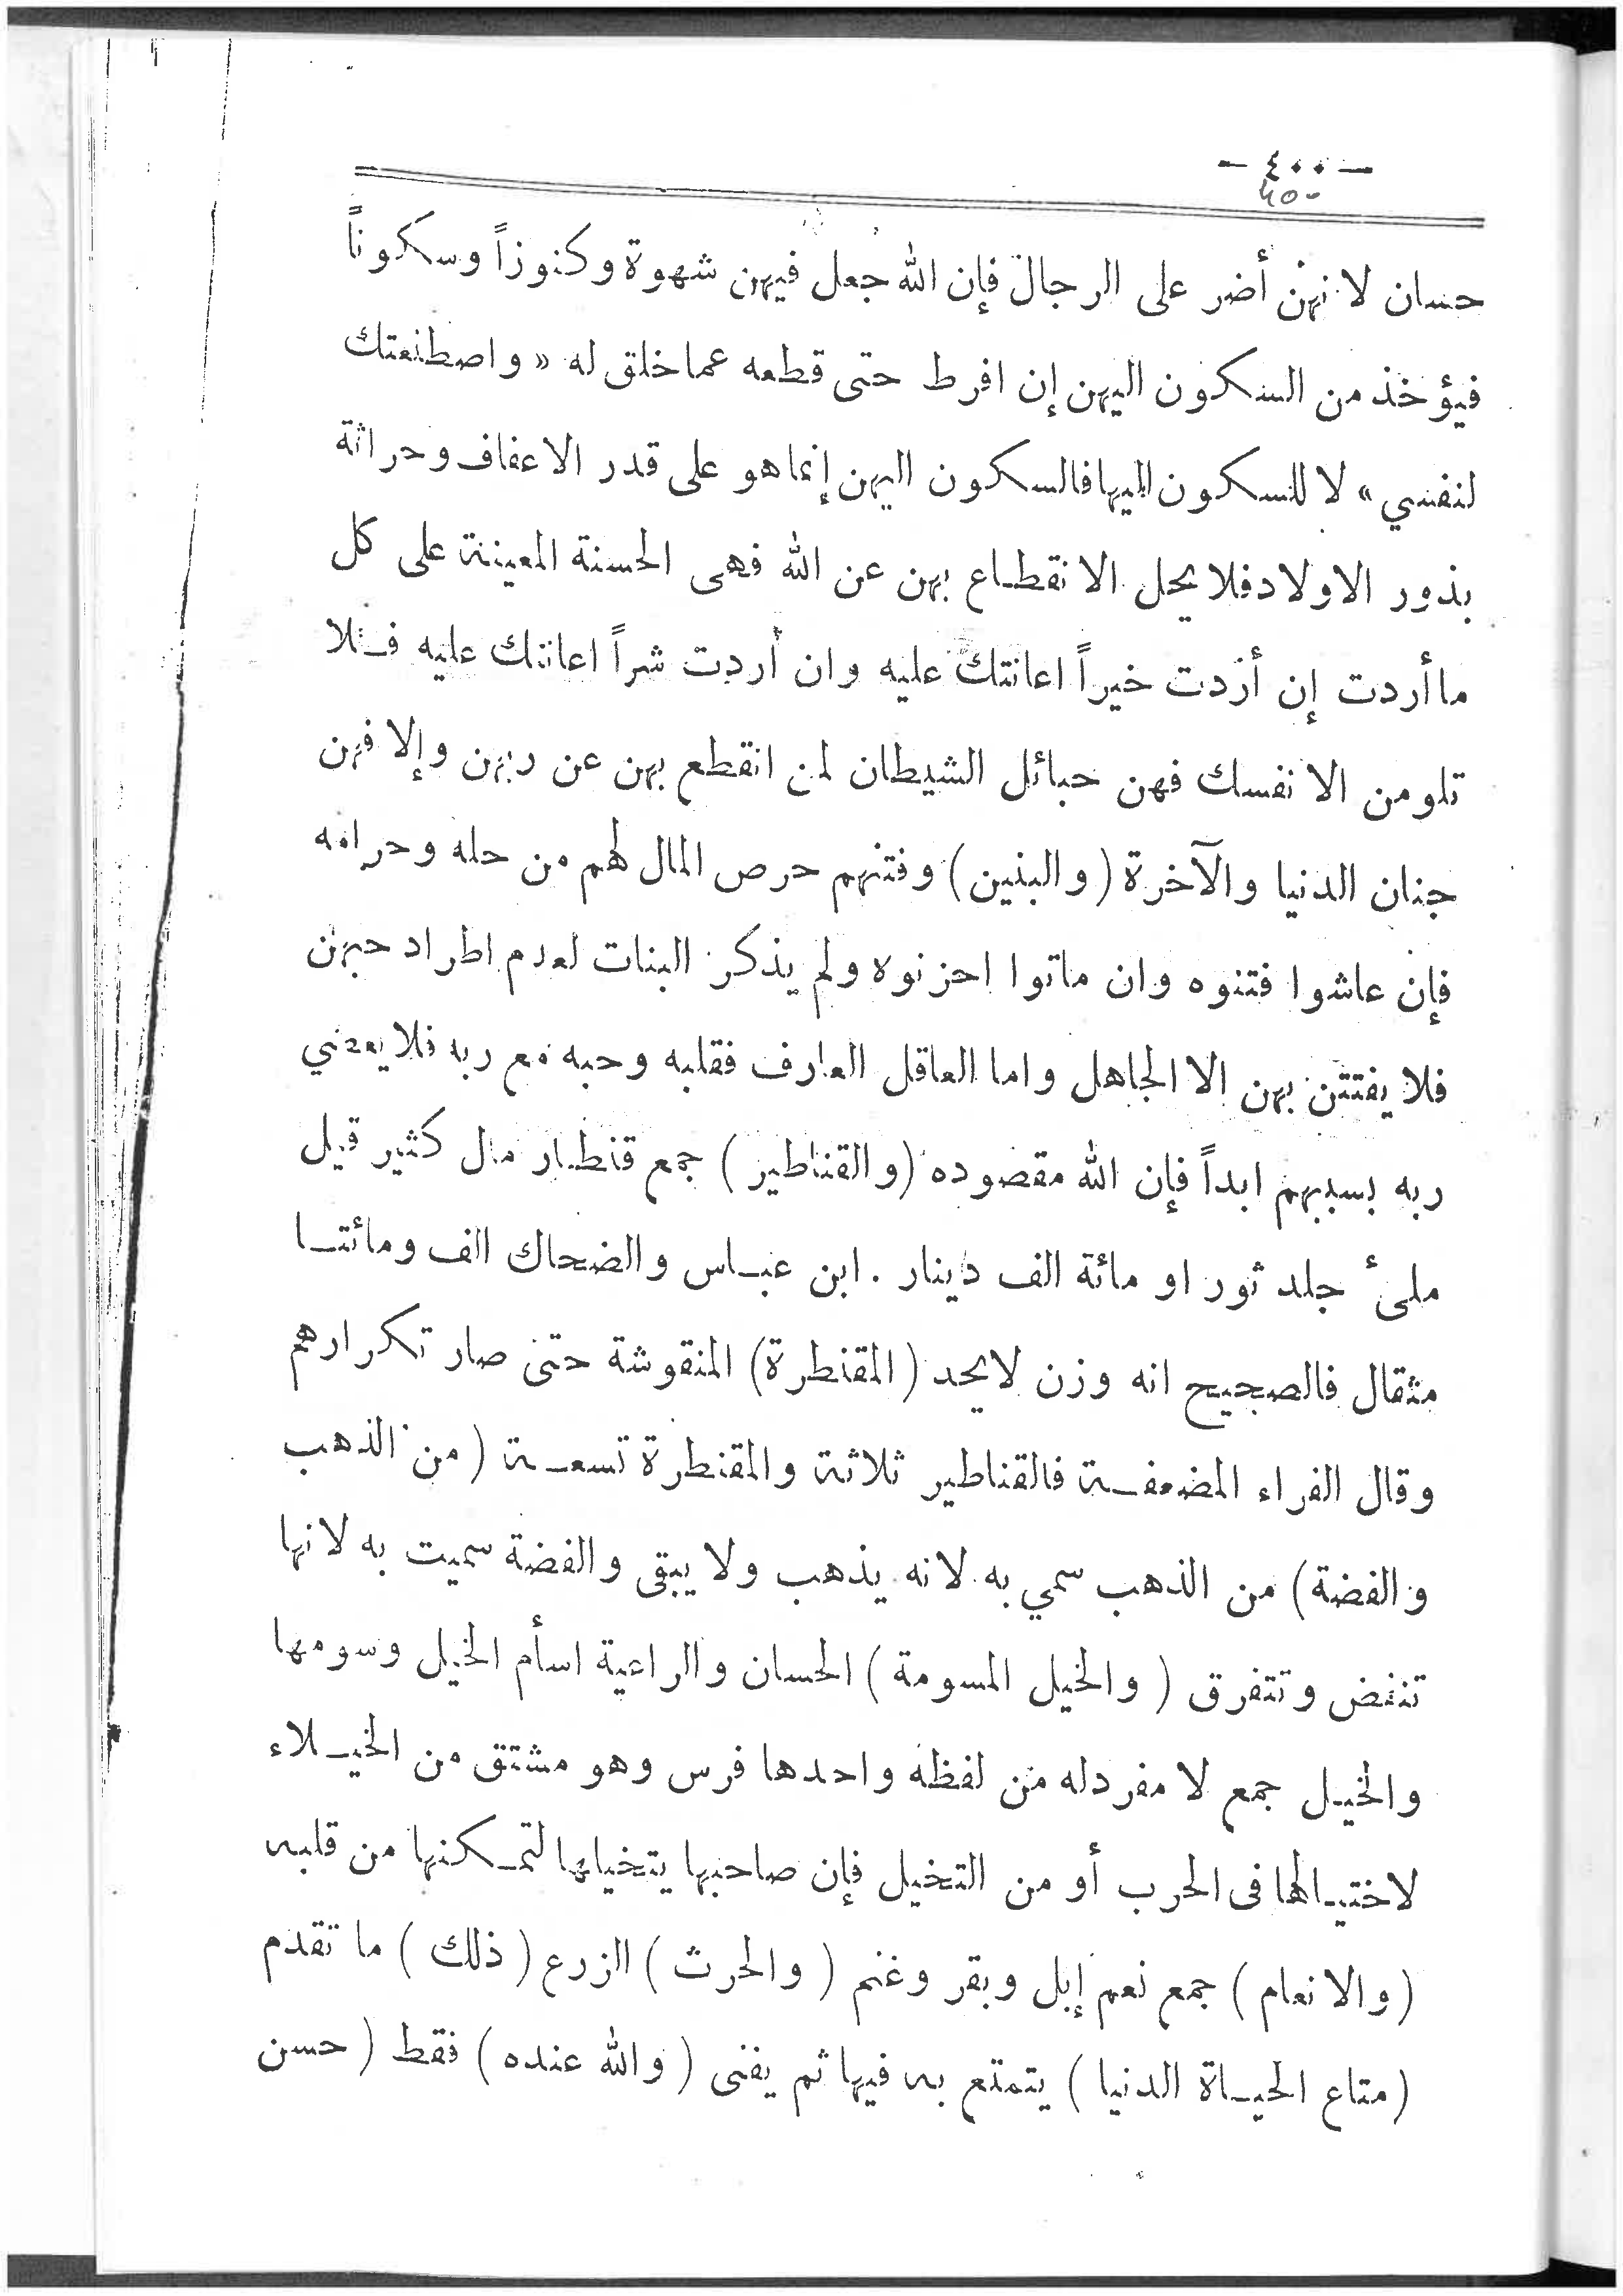 — ٤٠٠ —
400
حسان لانهن أضر على الرجال فإن الله جعل فيهن شهوة وكنوزاً وسكوناً
فيؤخذ من السكون اليهن إن افرط حتى قطعه عما خلق له « واصطنعتك
لنفسي » لا للسكون اليها فالسكون اليهن إنما هو على قدر الاعفاف وحراثة
بذور الاولاد فلا يحل الانقطاع بهن عن الله فهى الحسنة المعينة على كل
ما أردت إن أردت خيراً اعانتك عليه وان أردت شراً اعانتك عليه فلا
تلومن الا نفسك فهن حبائل الشيطان لمن انقطع بهن عن ربهن وإلا فهن
جنان الدنيا والآخرة ( والبنين ) وفتنهم حرص المال لهم من حله وحرامه
فإن عاشوا فتنوه وان ماتوا احزنوه ولم يذكر البنات لعدم اطراد حبهن
فلا يفتتن بهن الا الجاهل واما العاقل العارف فقلبه وحبه مع ربه فلا يعصي
ربه بسببهم ابداً فإن الله مقصوده ( والقناطير ) جمع قنطار مال كثير قيل
ملئ جلد ثور او مائة الف دينار . ابن عباس والضحاك الف ومائتا
مثقال فالصحيح انه وزن لايحد ( المقنطرة ) المنقوشة حتى صار تكرارهم
وقال الفراء المضعفة فالقناطير ثلاثة والمقنطرة تسعة ( من الذهب
والفضة ) من الذهب سمي به لانه يذهب ولا يبقى والفضة سميت به لانها
تنفض وتتفرق ( والخيل المسومة ) الحسان والراعية اسأم الخيل وسومها
والخيل جمع لا مفرد له من لفظه واحدها فرس وهو مشتق من الخيلاء
لاختيالها فى الحرب أو من التخيل فإن صاحبها يتخيلها لتمكنها من قلبه
( والانعام ) جمع نعم إبل وبقر وغنم ( والحرث ) الزرع ( ذلك ) ما تقدم
( متاع الحياة الدنيا ) يتمتع به فيها ثم يفنى ( والله عنده ) فقط ( حسن